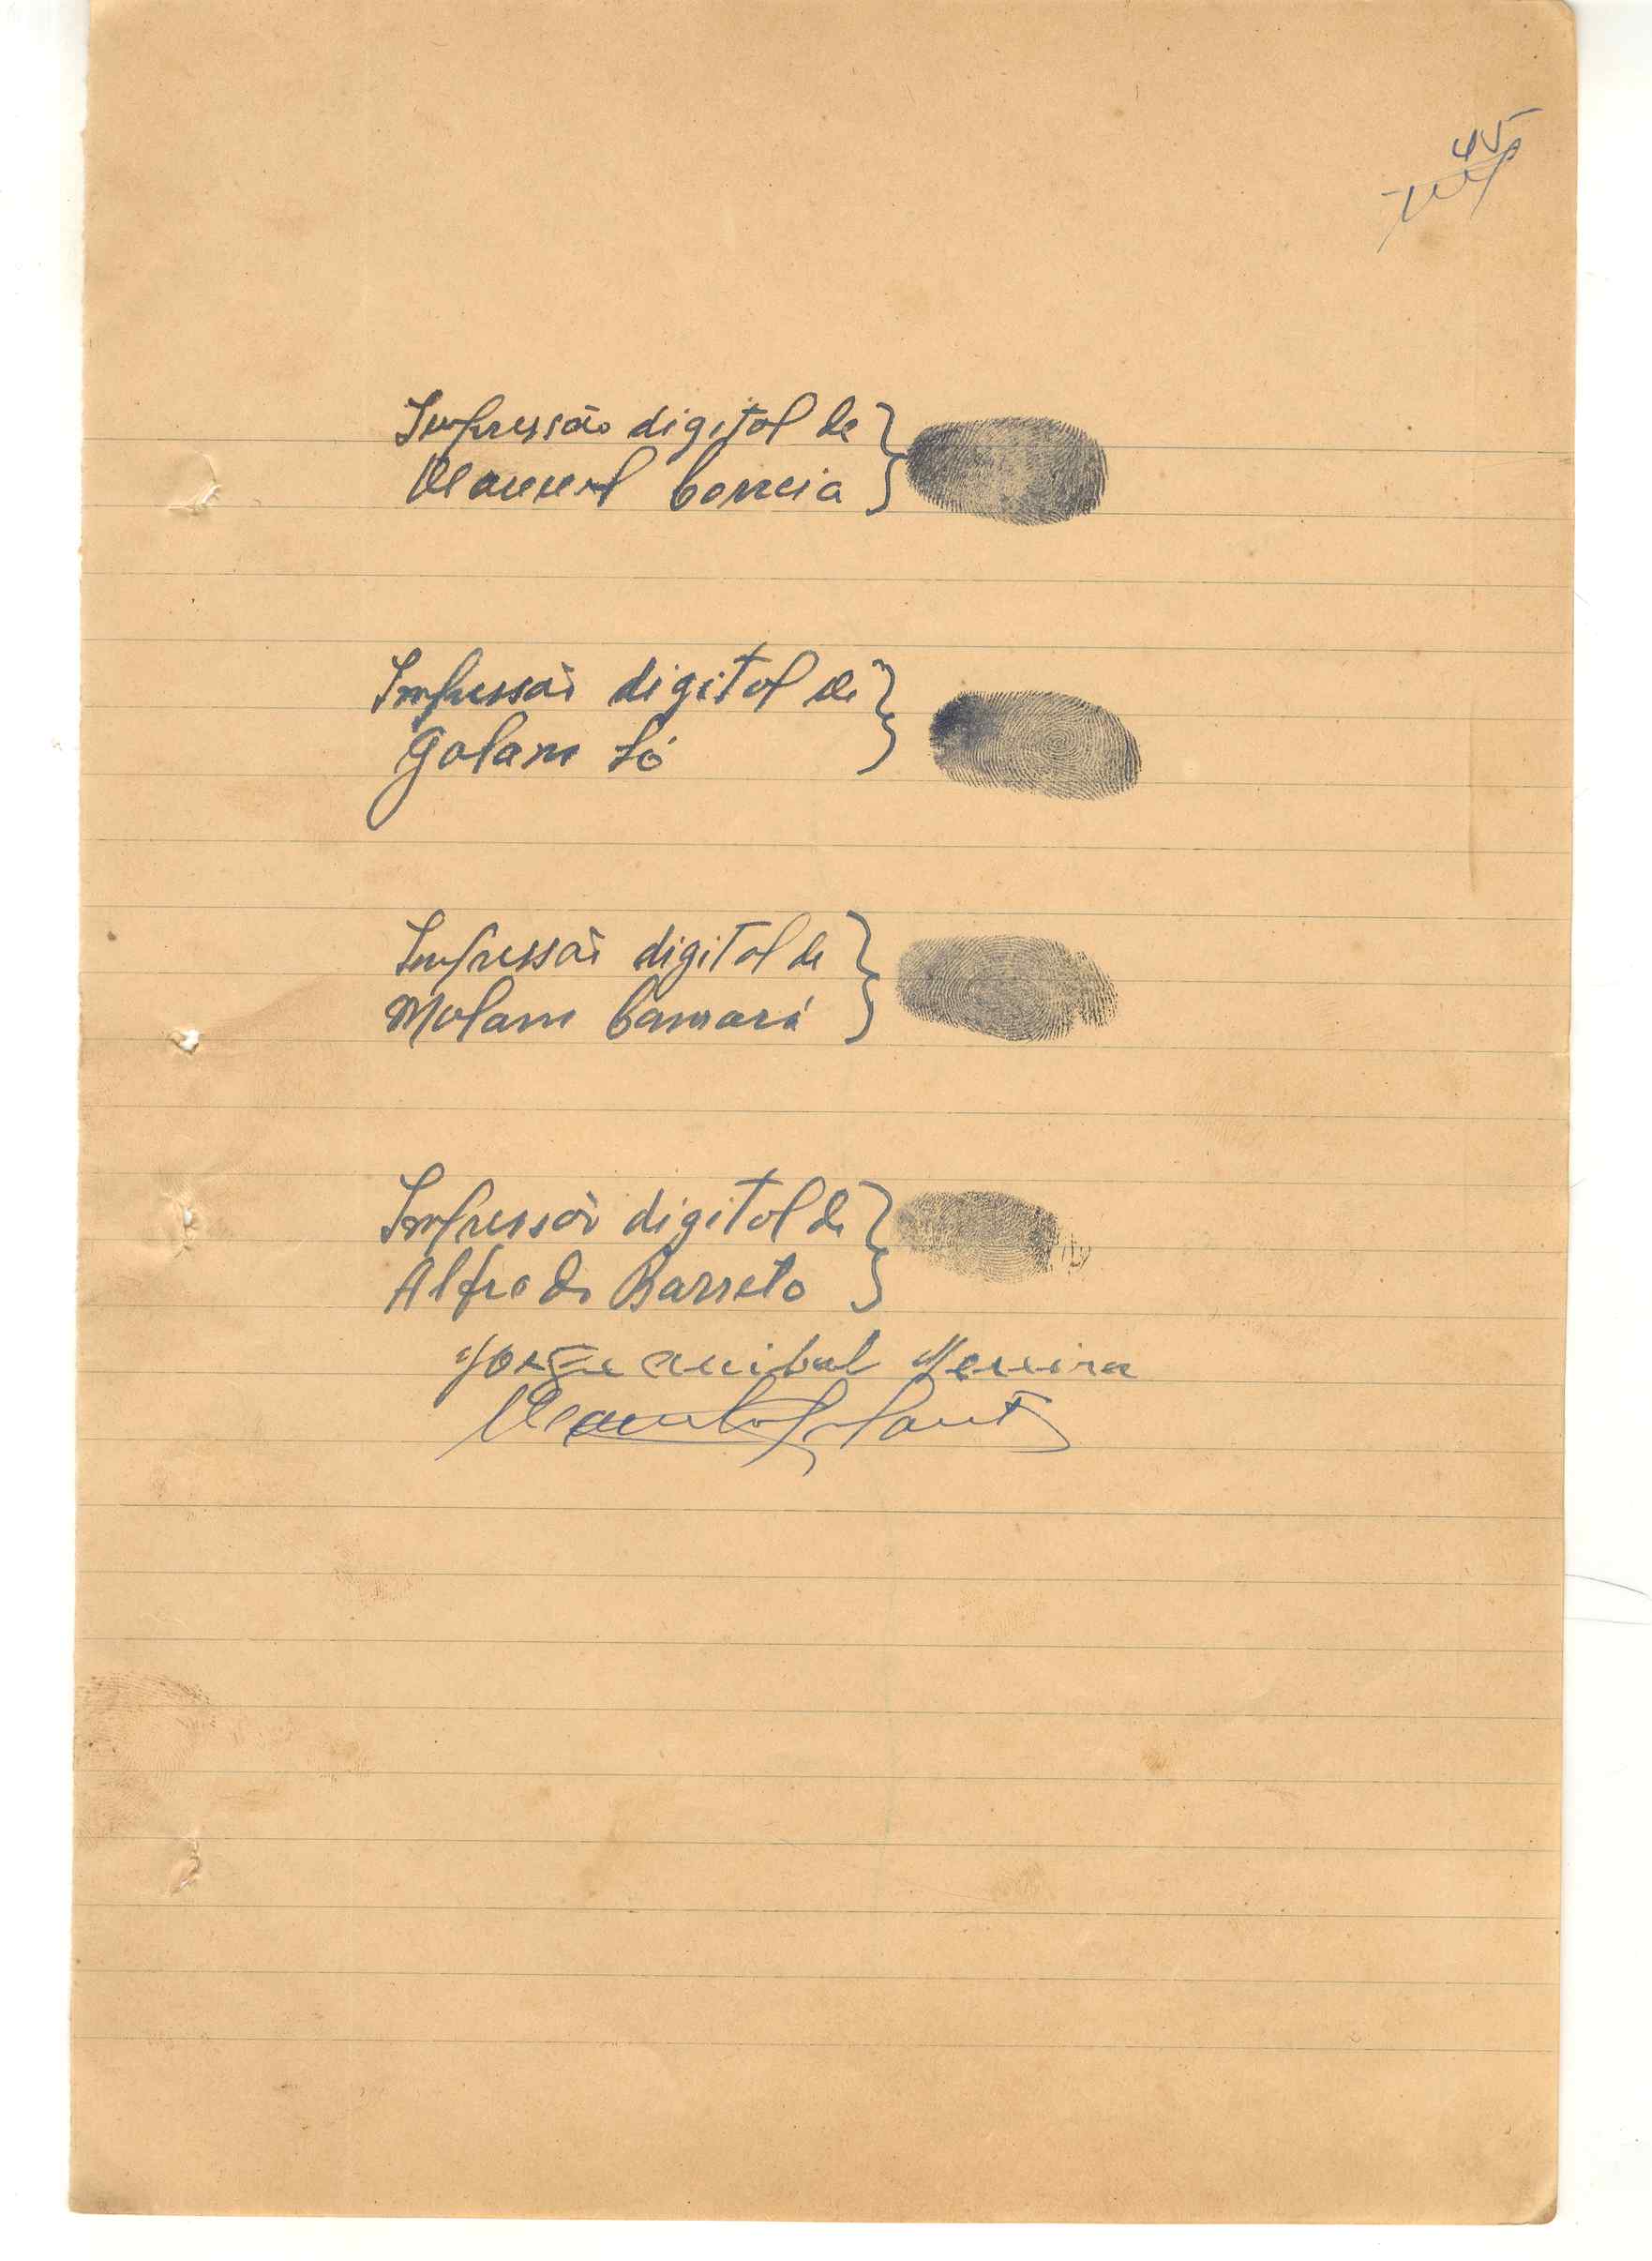 45
Impressão digital de
Manuel Correia
Impressão digital de
Galam Só
Impressão digital de
Molam Camará
Impressão digital de
Alfredo Barreto
Jorge Anibal Pereira